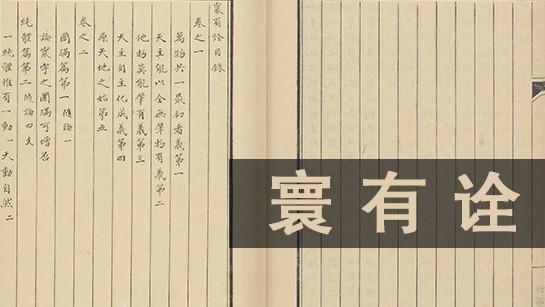 寰有詮目錄
卷之一
萬物共一最初者義第一
天主能以全無肇物有義第二
他物莫能肇有義第三
天主自主化成義第四
原天地之始第五
卷之二
圜滿篇第一 隨論一
論寰宇之圜滿可增否
純體篇第二 隨論四
一純體惟有一動一天動自然二
寰有诠